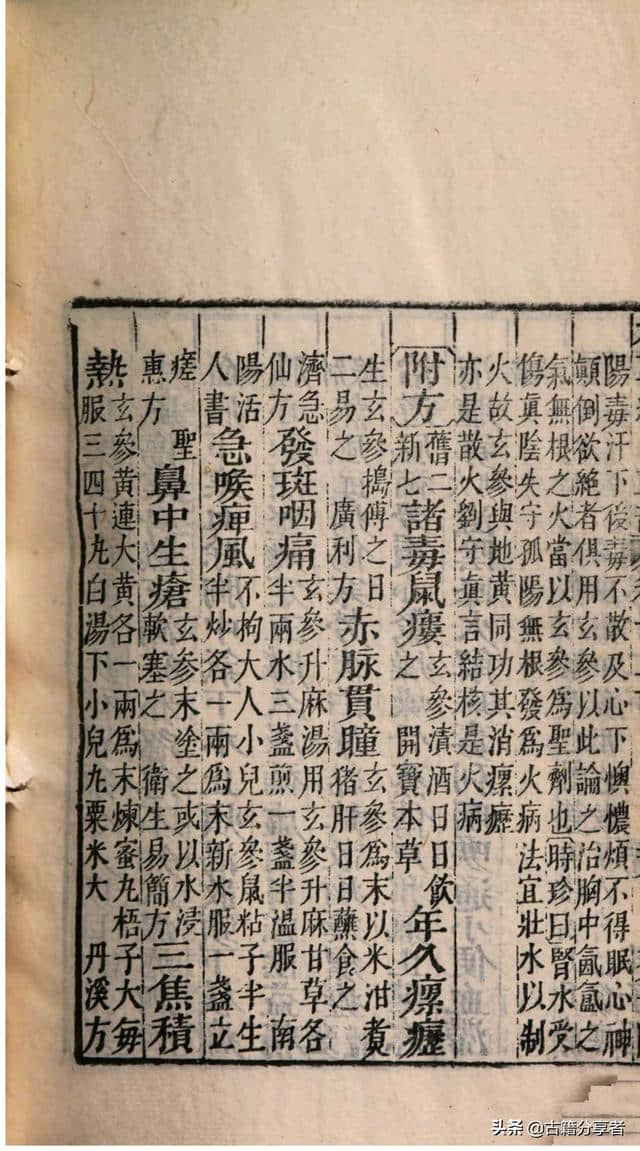 陽毒汗下後毒不散及心下懊憹煩不得眠心神
顛倒欲絕者俱用玄參以此論之治胸中氤氳之
氣無根之火當以玄參爲聖劑也時珍曰腎水受
傷眞陰失守孤陽無根發爲火病法宜壯水以制
火故玄參與地黃同功其消瘰癧
亦是散火劉守眞言結核是火病
附方舊二新七諸毒鼠瘻玄參漬酒日日飲之 開寶本草年久瘰癧
生玄參搗傅之日二易之 廣利方赤脉貫瞳玄參爲末以米泔煑猪肝日日蘸食之
濟急仙方發斑咽痛玄參升麻湯用玄參升麻甘草各半兩水三盞煎一盞半温服 南
陽活人書急喉痺風不拘大人小兒玄參鼠粘子半生半炒各一兩爲末新水服一盞立
瘥 聖惠方鼻中生瘡玄參末塗之或以水浸軟塞之 衛生易簡方三焦積
熱玄參黃連大黃各一兩爲末煉蜜丸梧子大每服三四十丸白湯下小兒丸粟米大 丹溪方
头条 @古籍分享者